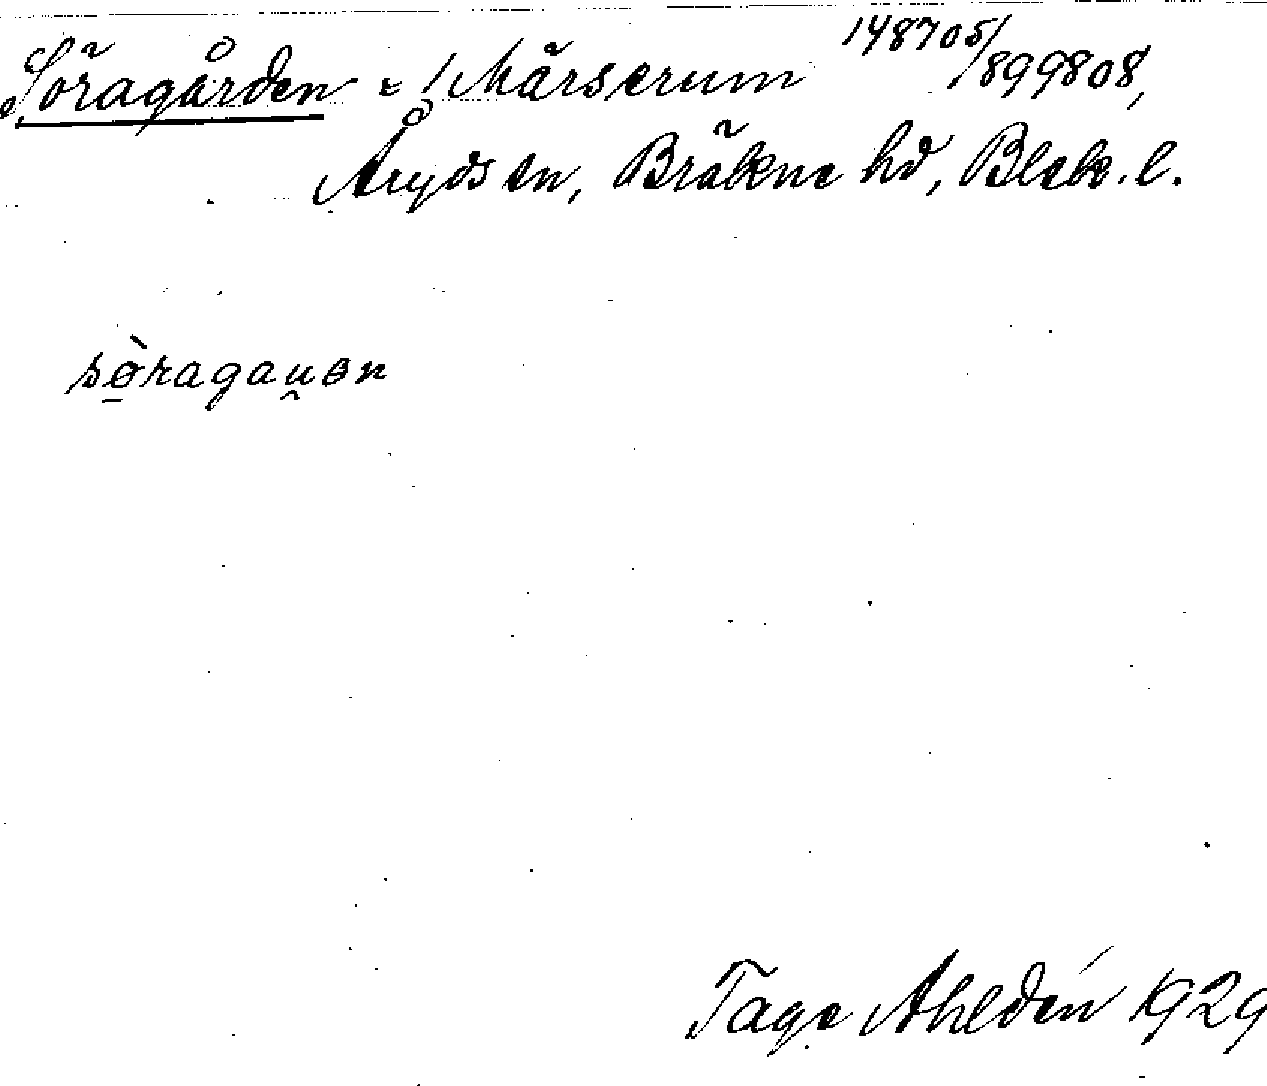 Söragården i Märserum 148705/
/899808,
Åryds sn, Bräkne hd, Blek. l.
sø̀ragau̯ən
Tage Ahldén 1929